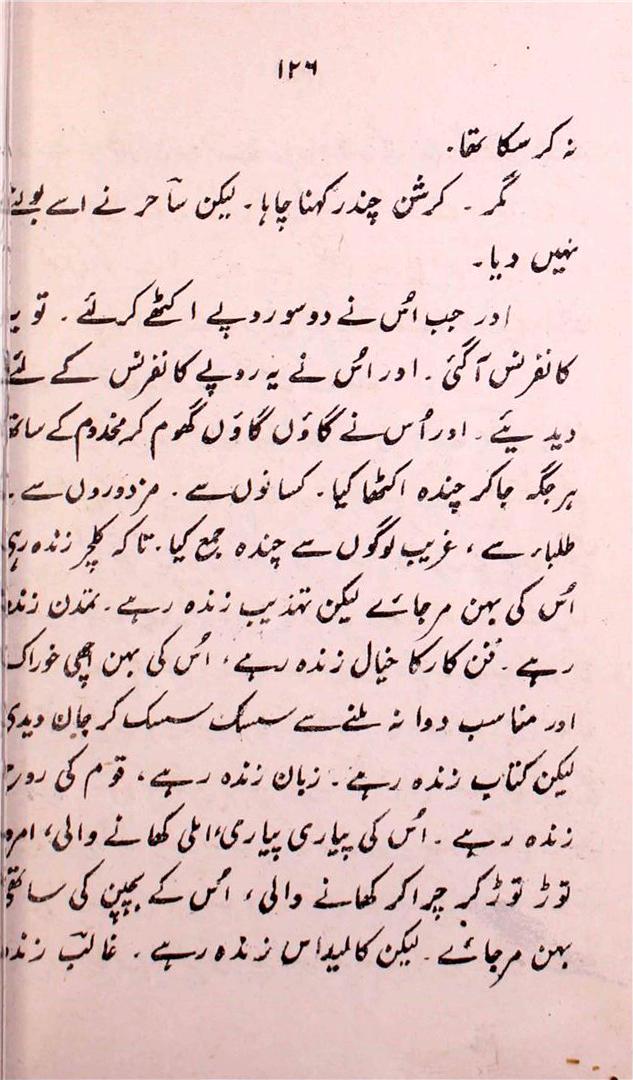 ۱۲۶
نہ کر سکا تھا۔
مگر ۔ کرشن چندر کہنا چاہا ۔ لیکن ساحر نے اسے بولنے
نہیں دیا۔
اور جب اُس نے دوسو روپے اکٹھے کرلئے ۔ تو یہ
کانفرنس آگئی ۔ اور اُس نے یہ روپے کانفرنس کے لئے
دیدیئے ۔ اور اُس نے گاؤں گاؤں گھوم کر مخدوم کے ساتھ
ہر جگہ جا کر چندہ اکٹھا کیا ۔ کسانوں سے ۔ مزدوروں سے ۔
طلباء سے ، غریب لوگوں سے چندہ جمع کیا ۔ تاکہ کلچر زندہ رہے
اُس کی بہن مر جائے لیکن تہذیب زندہ رہے ۔ تمدن زندہ
رہے ۔ فن کار کا خیال زندہ رہے ، اُس کی بہن اچھی خوراک
اور مناسب دوا نہ ملنے سے سسک سسک کر جان دیدی
لیکن کتاب زندہ رہے ۔ زبان زندہ رہے ، قوم کی روح
زندہ رہے ۔ اُس کی پیاری پیاری ، املی کھانے والی ، امرود
توڑ توڑ کر چرا کر کھانے والی ، اُس کے بچپن کی ساتھی
بہن مر جائے ۔ لیکن کالیداس زندہ رہے ۔ غالبؔ زندہ